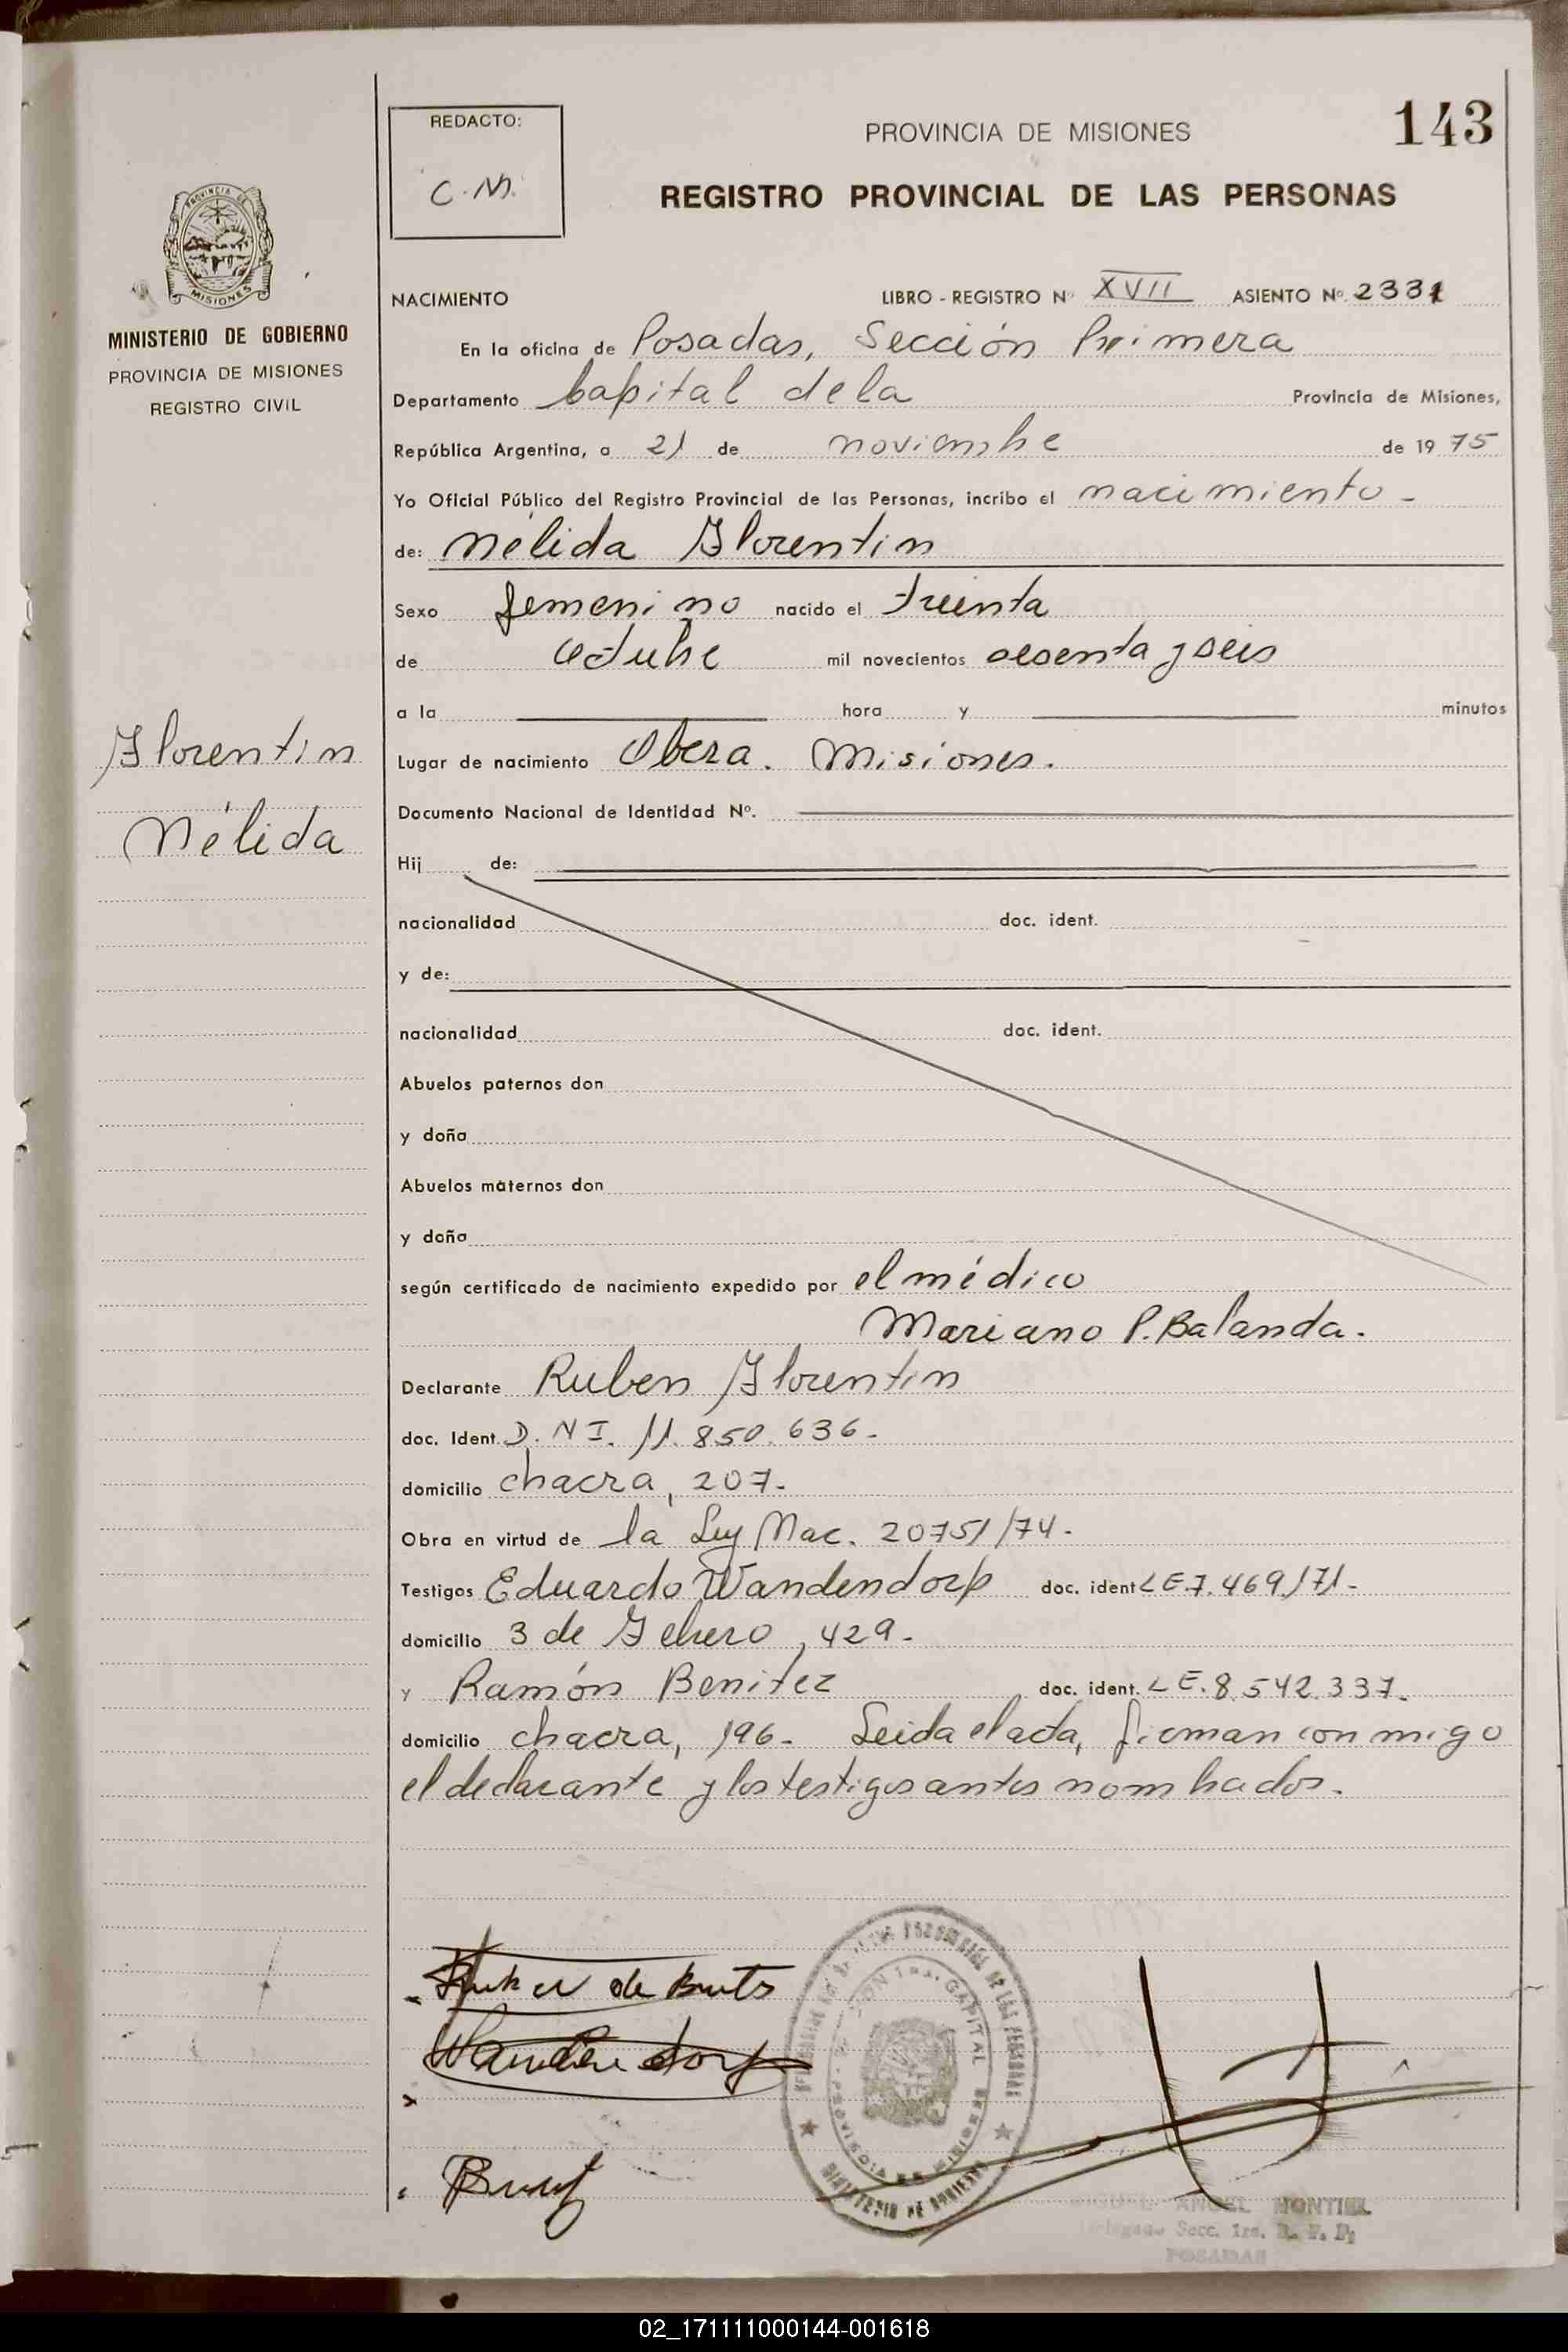 143
REDACTO:
C.M.
PROVINCIA DE MISIONES
REGISTRO PROVINCIAL DE LAS PERSONAS
PROVINCIA DE
MISIONES
MINISTERIO DE GOBIERNO
PROVINCIA DE MISIONES
REGISTRO CIVIL
NACIMIENTO LIBRO - REGISTRO Nº XVII ASIENTO Nº 2331
En la oficina de Posadas, Sección Primera
Departamento Capital de la Provincia de Misiones,
República Argentina, a 21 de noviembre de 19 75
Yo Oficial Público del Registro Provincial de las Personas, incribo el nacimiento -
de: Nélida Florentin
Sexo femenino nacido el treinta
de Octubre mil novecientos sesenta y seis
a la hora y minutos
Florentin
Nélida
Lugar de nacimiento Obera. Misiones.
Documento Nacional de Identidad Nº.
Hij de:
nacionalidad doc. ident.
y de:
nacionalidad doc. ident.
Abuelos paternos don
y doña
Abuelos maternos don
y doña
según certificado de nacimiento expedido por el médico
Mariano P. Balanda.
Declarante Ruben Florentin
doc. Ident. D.N I. 11.850.636.-
domicilio chacra, 207.-
Obra en virtud de la Ley Nac. 20751/74.-
Testigos Eduardo Wandendorp doc. ident L E 7.469171-
domicilio 3 de Febrero, 429.-
y Ramón Benitez doc. ident. L E. 8.542.337.
domicilio chacra, 196.- Leida el acta, firman conmigo
el declarante y los testigos antes nombrados.
Wandendorp
1ra. CAPITAL
MINISTERIO DE GOBIERNO
MIGUEL ANGEL MONTIEL
Delegado Secc. 1ra. R. P. P.
POSADAS
02_171111000144-001618